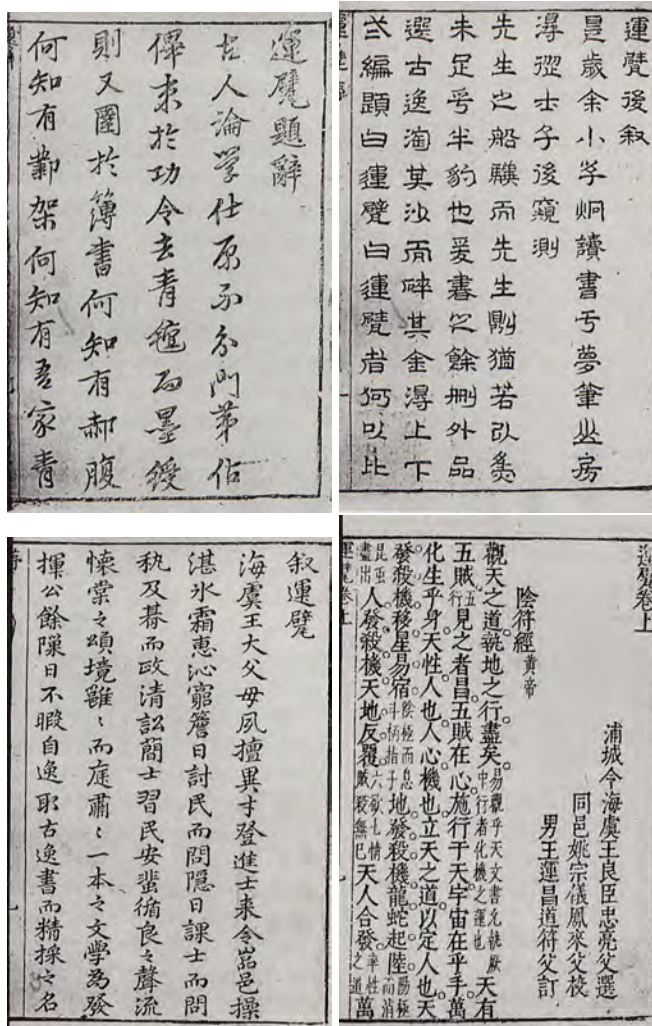 運甓題辭
古人論學仕原不分門第佔
僤束於功令去青氊而墨綬
則又圉於簿書何知有郝腹
何知有鄴架何知有吾家青
運甓後叙
是歲余小子炯讀書于夢筆山房
淂從士子後窺測
先生之船驥而先生則猶若以為
未足乎半豹也爰書之餘刪外品
選古逸淘其沙而碎其金淂上下
弍編題曰運甓曰運甓者何以比
叙運甓
海虞王大父母夙擅異才登進士來令嵓邑操
湛氷霜惠沁窮簷日討民而問隱日課士而問
秇及朞而政清訟簡士習民安蜚循良之聲流
懷棠之頌境雖〻而庭肅〻一本之文學為發
揮公餘隟日不暇自逸取古逸書而精採之名
運甓卷上
浦城令海虞王良臣忠亮父選
同邑姚宗儀鳳來父校
男王運昌道符父訂
陰符經 黃帝
觀天之道執地之行盡矣。易觀乎天文書允執厥中行者化機之運也天有
五賊五行見之者昌五賊在心施行于天宇宙在乎手萬
化生乎身天性人也人心機也立天之道以定人也天
發殺機移星易宿陰極而息斗柄指子地發殺機龍蛇起陸陽極而消
昆虫盡出人發殺機天地反覆六欲七情賊殺無已天人合發率性之道萬